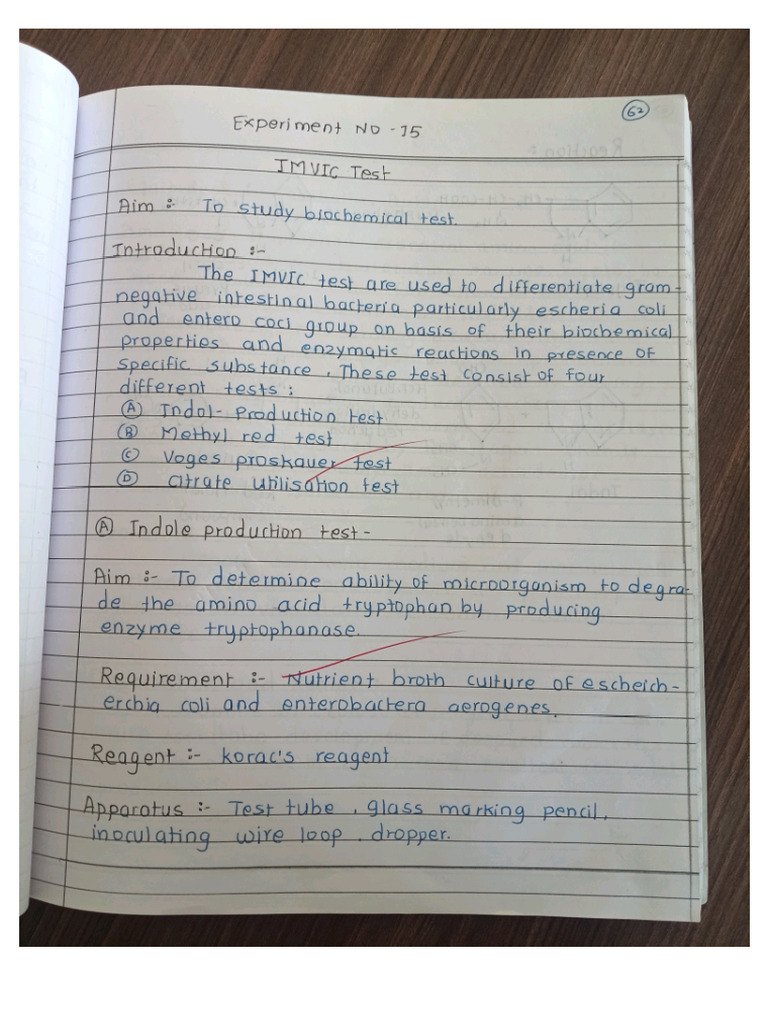 62
Experiment NO - 15
IMVIC Test
Aim :- To study biochemical test.
Introduction :-
The IMVIC test are used to differentiate gram-
negative intestinal bacteria particularly escheria coli
and entero coci group on basis of their biochemical
properties and enzymatic reactions in presence of
specific substance. These test consist of four
different tests :
A Indol- Production test
B Methyl red test
C Voges proskauer test
D Citrate utilisation test
A Indole production test -
Aim :- To determine ability of microorganism to degra-
de the amino acid tryptophan by producing
enzyme tryptophanase.
Requirement :- Nutrient broth culture of escheich-
erchia coli and enterobactera aerogenes.
Reagent :- korac's reagent
Apparatus :- Test tube, glass marking pencil,
inoculating wire loop, dropper.